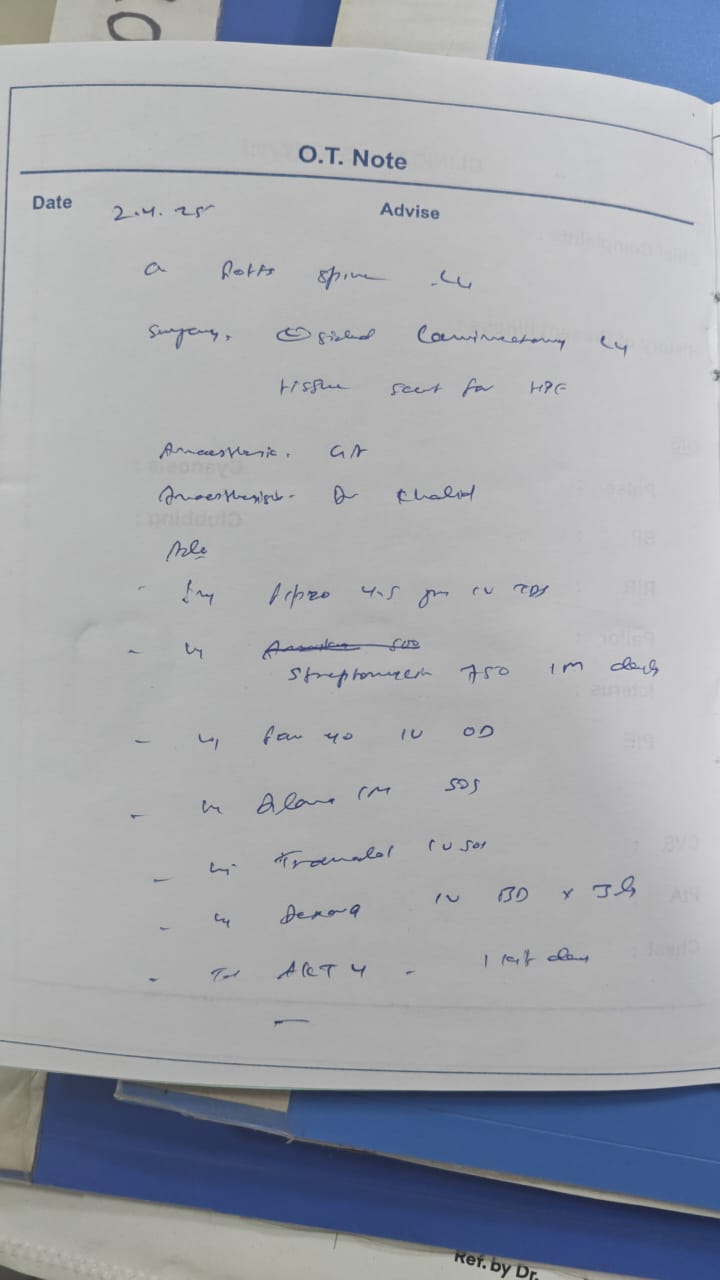 O.T. Note
Date 2.4.25 Advise
Potts spine L4
Surgery. sided Laminectomy L4
tissue sent for HPE
Anaesthesia. GA
Anaesthesist. Dr Khalid
Inj Pipzo 4.5 gm IV TDS
500
Streptomycin 750 IM daily
Inj Pan 40 IV OD
Inj IM SOS
Inj Tramadol IV SOS
Inj Dexona IV BD x 3d
Tab AKT 4 - 1 kit day
Ref. by Dr.